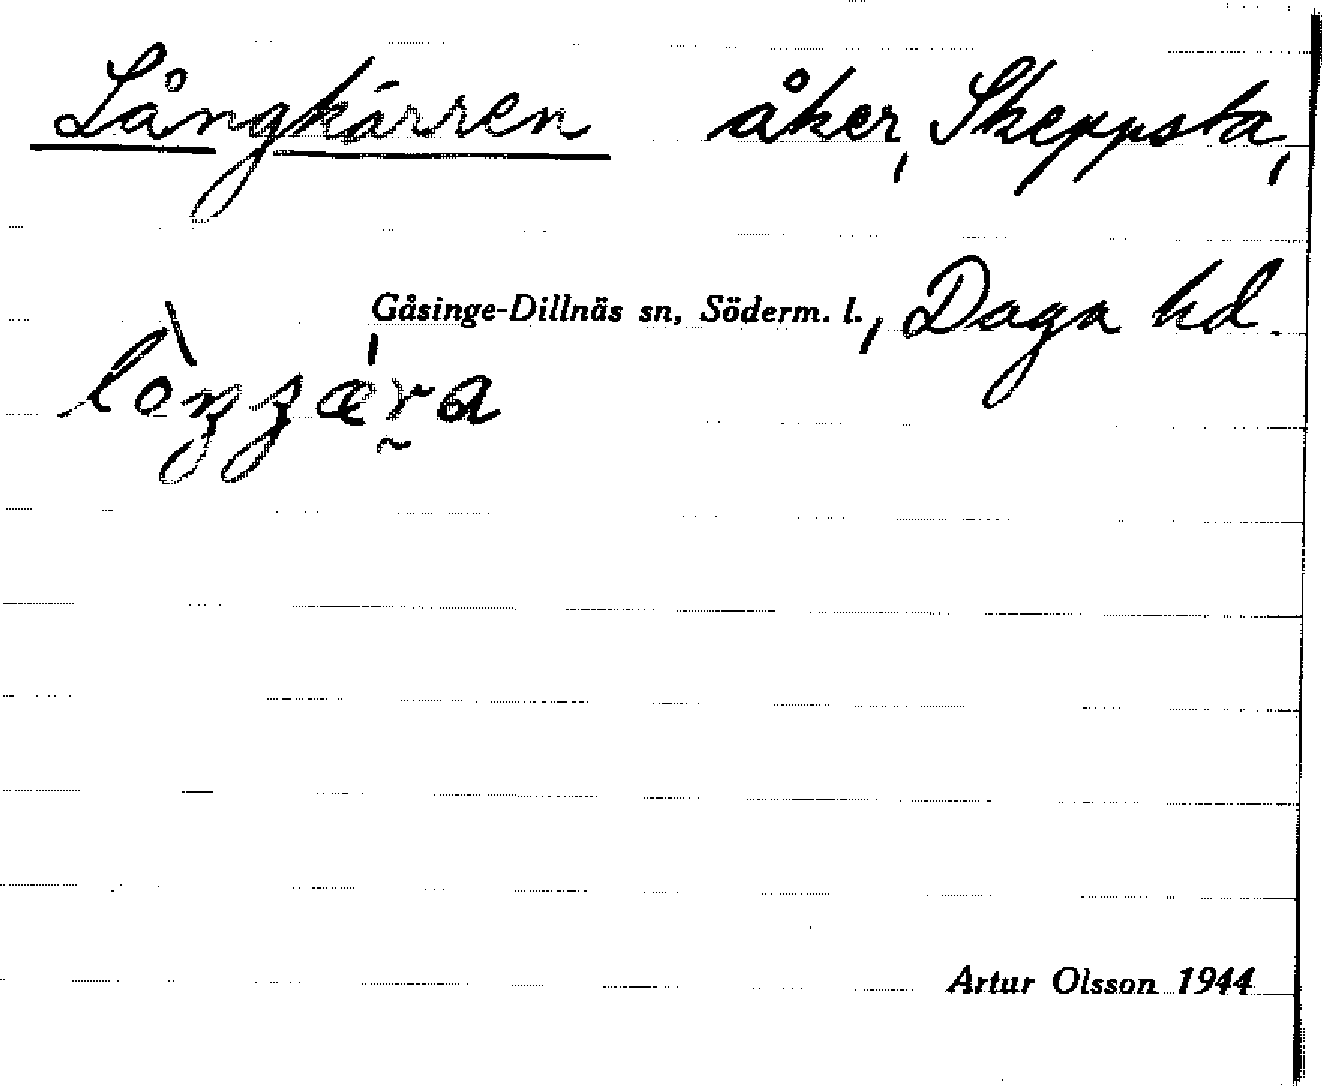 Långkärren åker, Skeppsta,
Gåsinge-Dillnäs sn, Söderm. l., Daga hd.
Artur Olsson 1944